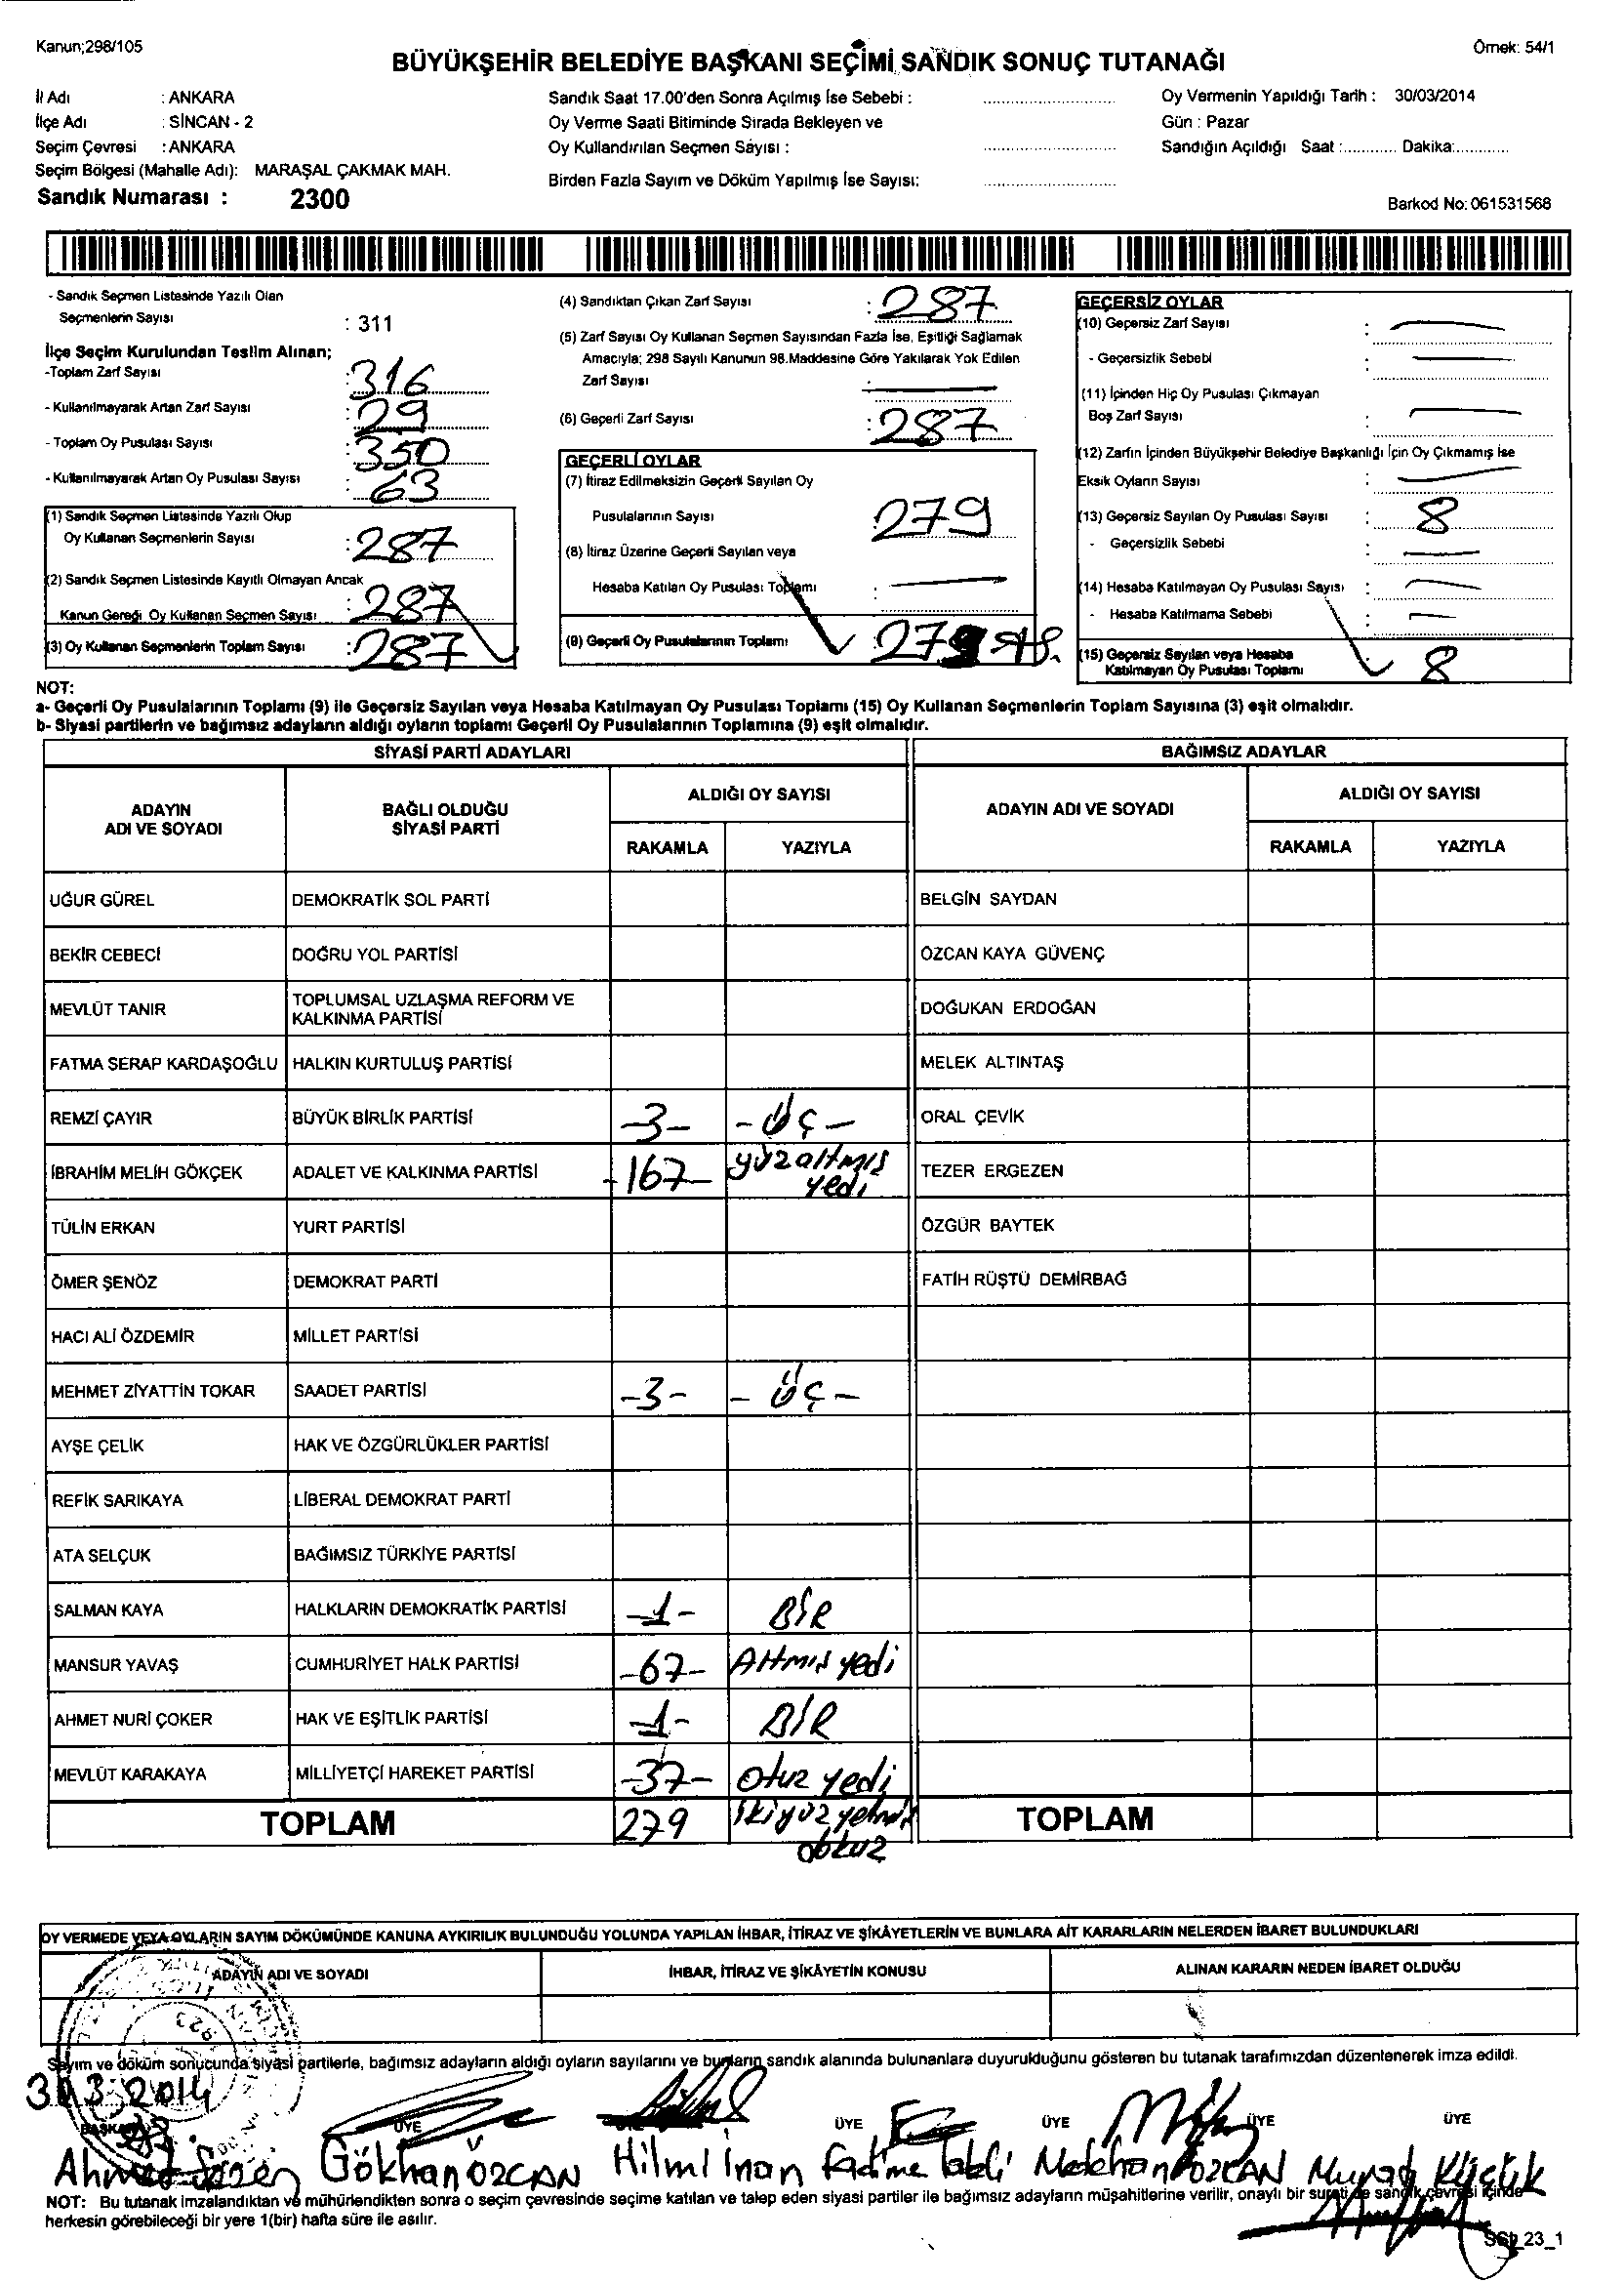 Kanun;298/105
Örnek: 54/1
BÜYÜKŞEHİR BELEDİYE BAŞKANI SEÇİMİ SANDIK SONUÇ TUTANAĞI
İl Adı : ANKARA
İlçe Adı : SİNCAN - 2
Seçim Çevresi : ANKARA
Seçim Bölgesi (Mahalle Adı): MARAŞAL ÇAKMAK MAH.
Sandık Numarası : 2300
Sandık Saat 17.00'den Sonra Açılmış İse Sebebi :
Oy Verme Saati Bitiminde Sırada Bekleyen ve
Oy Kullandırılan Seçmen Sayısı :
Birden Fazla Sayım ve Döküm Yapılmış İse Sayısı:
Oy Vermenin Yapıldığı Tarih : 30/03/2014
Gün : Pazar
Sandığın Açıldığı Saat :............ Dakika:............
Barkod No: 061531568
- Sandık Seçmen Listesinde Yazılı Olan
Seçmenlerin Sayısı : 311
İlçe Seçim Kurulundan Teslim Alınan;
-Toplam Zarf Sayısı : 316
- Kullanılmayarak Artan Zarf Sayısı : 29
- Toplam Oy Pusulası Sayısı : 350
- Kullanılmayarak Artan Oy Pusulası Sayısı : 63
(1) Sandık Seçmen Listesinde Yazılı Olup
Oy Kullanan Seçmenlerin Sayısı : 287
(2) Sandık Seçmen Listesinde Kayıtlı Olmayan Ancak
Kanun Gereği Oy Kullanan Seçmen Sayısı : 287
(3) Oy Kullanan Seçmenlerin Toplam Sayısı : 287
(4) Sandıktan Çıkan Zarf Sayısı : 287
(5) Zarf Sayısı Oy Kullanan Seçmen Sayısından Fazla İse, Eşitliği Sağlamak
Amacıyla; 298 Sayılı Kanunun 98.Maddesine Göre Yakılarak Yok Edilen
Zarf Sayısı : —
(6) Geçerli Zarf Sayısı : 287
GEÇERLİ OYLAR
(7) İtiraz Edilmeksizin Geçerli Sayılan Oy
Pusulalarının Sayısı : 279
(8) İtiraz Üzerine Geçerli Sayılan veya
Hesaba Katılan Oy Pusulası Toplamı : —
(9) Geçerli Oy Pusulalarının Toplamı 279
GEÇERSİZ OYLAR
(10) Geçersiz Zarf Sayısı : —
- Geçersizlik Sebebi : —
(11) İçinden Hiç Oy Pusulası Çıkmayan
Boş Zarf Sayısı : —
(12) Zarfın İçinden Büyükşehir Belediye Başkanlığı İçin Oy Çıkmamış İse
Eksik Oyların Sayısı : —
(13) Geçersiz Sayılan Oy Pusulası Sayısı : 8
- Geçersizlik Sebebi : —
(14) Hesaba Katılmayan Oy Pusulası Sayısı : —
- Hesaba Katılmama Sebebi : —
(15) Geçersiz Sayılan veya Hesaba
Katılmayan Oy Pusulası Toplamı 8
NOT:
a- Geçerli Oy Pusulalarının Toplamı (9) ile Geçersiz Sayılan veya Hesaba Katılmayan Oy Pusulası Toplamı (15) Oy Kullanan Seçmenlerin Toplam Sayısına (3) eşit olmalıdır.
b- Siyasi partilerin ve bağımsız adayların aldığı oyların toplamı Geçerli Oy Pusulalarının Toplamına (9) eşit olmalıdır.
SİYASİ PARTİ ADAYLARI
ADAYIN
ADI VE SOYADI
BAĞLI OLDUĞU
SİYASİ PARTİ
ALDIĞI OY SAYISI
RAKAMLA YAZIYLA
UĞUR GÜREL DEMOKRATİK SOL PARTİ
BEKİR CEBECİ DOĞRU YOL PARTİSİ
MEVLÜT TANIR TOPLUMSAL UZLAŞMA REFORM VE
KALKINMA PARTİSİ
FATMA SERAP KARDAŞOĞLU HALKIN KURTULUŞ PARTİSİ
REMZİ ÇAYIR BÜYÜK BİRLİK PARTİSİ -3- -ÜÇ-
İBRAHİM MELİH GÖKÇEK ADALET VE KALKINMA PARTİSİ -167- yüzaltmış
yedi
TÜLİN ERKAN YURT PARTİSİ
ÖMER ŞENÖZ DEMOKRAT PARTİ
HACI ALİ ÖZDEMİR MİLLET PARTİSİ
MEHMET ZİYATTİN TOKAR SAADET PARTİSİ -3- - ÜÇ -
AYŞE ÇELİK HAK VE ÖZGÜRLÜKLER PARTİSİ
REFİK SARIKAYA LİBERAL DEMOKRAT PARTİ
ATA SELÇUK BAĞIMSIZ TÜRKİYE PARTİSİ
SALMAN KAYA HALKLARIN DEMOKRATİK PARTİSİ -1- BİR
MANSUR YAVAŞ CUMHURİYET HALK PARTİSİ -67- Altmış yedi
AHMET NURİ ÇOKER HAK VE EŞİTLİK PARTİSİ -1- BİR
MEVLÜT KARAKAYA MİLLİYETÇİ HAREKET PARTİSİ -37- otuz yedi
TOPLAM 279 ikiyüz yetmiş
dokuz
BAĞIMSIZ ADAYLAR
ADAYIN ADI VE SOYADI
ALDIĞI OY SAYISI
RAKAMLA YAZIYLA
BELGİN SAYDAN
ÖZCAN KAYA GÜVENÇ
DOĞUKAN ERDOĞAN
MELEK ALTINTAŞ
ORAL ÇEVİK
TEZER ERGEZEN
ÖZGÜR BAYTEK
FATİH RÜŞTÜ DEMİRBAĞ
TOPLAM
OY VERMEDE VEYA OYLARIN SAYIM DÖKÜMÜNDE KANUNA AYKIRILIK BULUNDUĞU YOLUNDA YAPILAN İHBAR, İTİRAZ VE ŞİKÂYETLERİN VE BUNLARA AİT KARARLARIN NELERDEN İBARET BULUNDUKLARI
ADAYIN ADI VE SOYADI
İHBAR, İTİRAZ VE ŞİKÂYETİN KONUSU
ALINAN KARARIN NEDEN İBARET OLDUĞU
Sayım ve döküm sonucunda siyasi partilerle, bağımsız adayların aldığı oyların sayılarını ve bunların sandık alanında bulunanlara duyurulduğunu gösteren bu tutanak tarafımızdan düzenlenerek imza edildi.
30.3.2014
BAŞKAN ÜYE ÜYE ÜYE ÜYE ÜYE
Ahmet Gökhan ÖZCAN Hilmi İnan Fadime Melekhan ÖZCAN Murat Küçük
NOT: Bu tutanak imzalandıktan ve mühürlendikten sonra o seçim çevresinde seçime katılan ve talep eden siyasi partiler ile bağımsız adayların müşahitlerine verilir, onaylı bir sureti de sandık çevresi içinde
herkesin görebileceği bir yere 1(bir) hafta süre ile asılır.
23_1